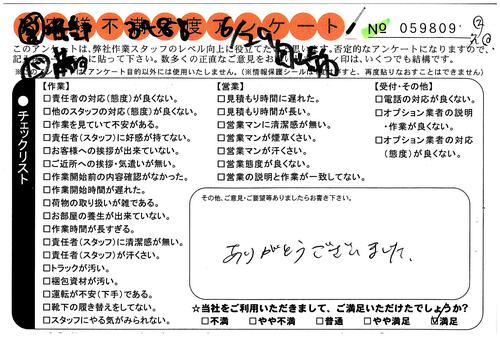 客様不満足度アンケート
№ 059809
このアンケートは、弊社作業スタッフのレベル向上に役立てたく思います。否定的なアンケートになりますので、
【作業】
□責任者の対応(態度)が良くない。
□他のスタッフの対応(態度)が良くない。
□作業を見ていて不安がある。
□責任者(スタッフ)に好感が持てない。
□お客様への挨拶が出来ていない。
□ご近所への挨拶・気遣いが無い。
□作業開始前の内容確認がなかった。
□作業開始時間が遅れた。
□荷物の取り扱いが雑である。
□お部屋の養生が出来ていない。
□作業時間が長すぎる。
□責任者(スタッフ)に清潔感が無い。
□責任者(スタッフ)が汗くさい。
□トラックが汚い。
□梱包資材が汚い。
□運転が不安(下手)である。
□靴下の履き替えをしてない。
□スタッフにやる気がみられない。
【営業】
□見積もり時間に遅れた。
□見積もり時間が長い。
□営業マンに清潔感が無い。
□営業マンが煙草くさい。
□営業マンが汗くさい。
□営業態度が良くない。
□営業の説明と作業が一致してない。
【受付・その他】
□電話の対応が良くない。
□オプション業者の説明
・作業が良くない。
□オプション業者の対応
(態度)が良くない。
●チェックリスト
その他、ご意見・ご要望等ありましたらお書き下さい。
ありがとうございました。
☆当社をご利用いただきまして、ご満足いただけたでしょうか?
□不満 □やや不満 □普通 □やや満足 ☑満足